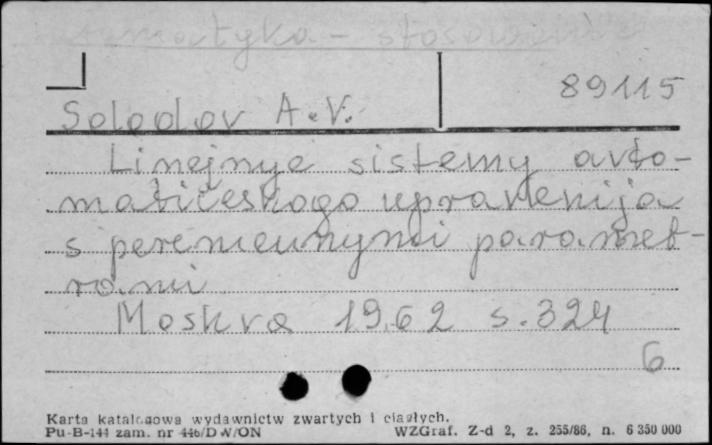 automatyka - stosowanie
89115
Solodov A.V.
Linejnye sistemy avto-
matičeskogo upravlenija
s peremennymi paramet-
rami
Moskva 1962 s. 324
6
Karta katalogowa wydawnictw zwartych i ciągłych.
Pu-B-144 zam. nr 446/DW/ON WZGraf. Z-d 2, z. 255/86, n. 6 350 000